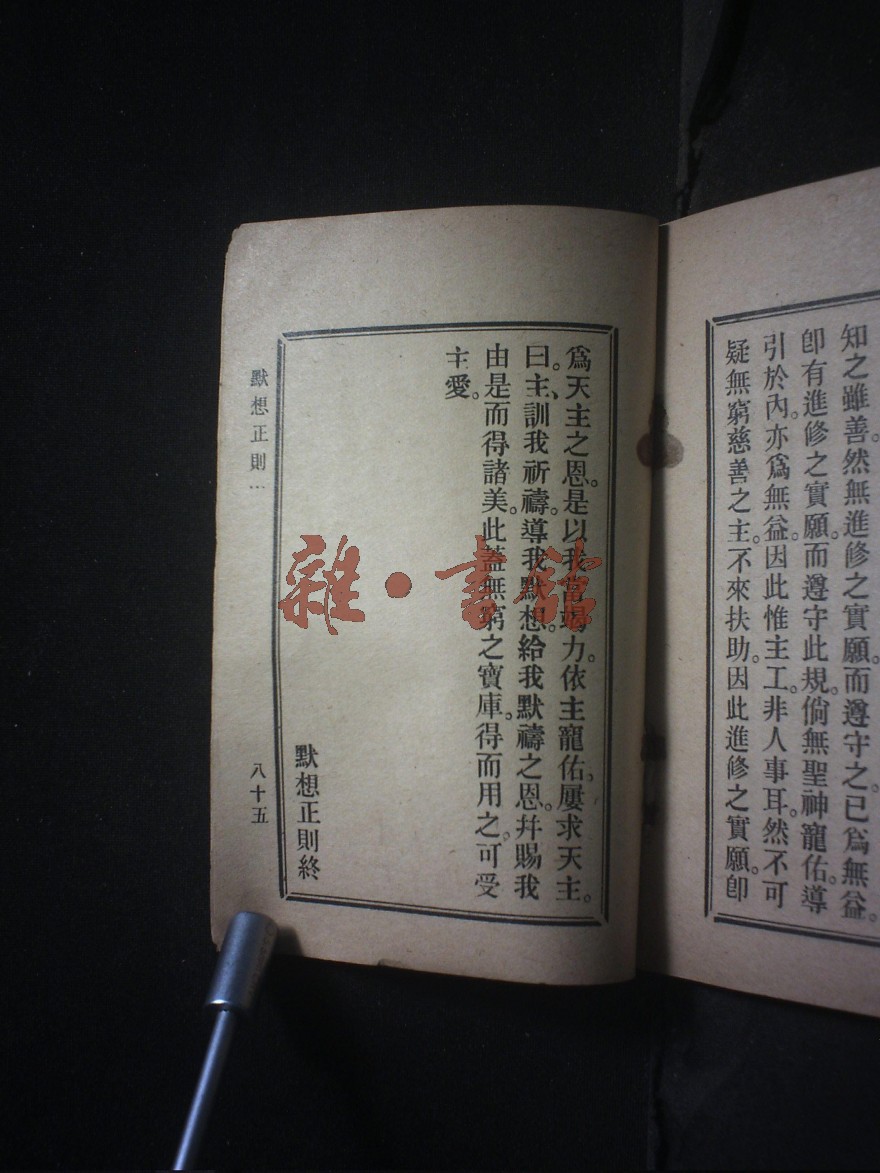 知之雖善。然無進修之實願。而遵守之。已爲無益。
卽有進修之實願。而遵守此規。倘無聖神寵佑。導
引於內。亦爲無益。因此惟主工。非人事耳。然不可
疑無窮慈善之主。不來扶助。因此進修之實願。卽
爲天主之恩。是以我當竭力。依主寵佑。屢求天主。
曰。主、訓我祈禱。導我默想。給我默禱之恩。幷賜我
由是而得諸美。此蓋無窮之寶庫。得而用之。可受
主愛。
默想正則終
默想正則…
八十五
雜·書館